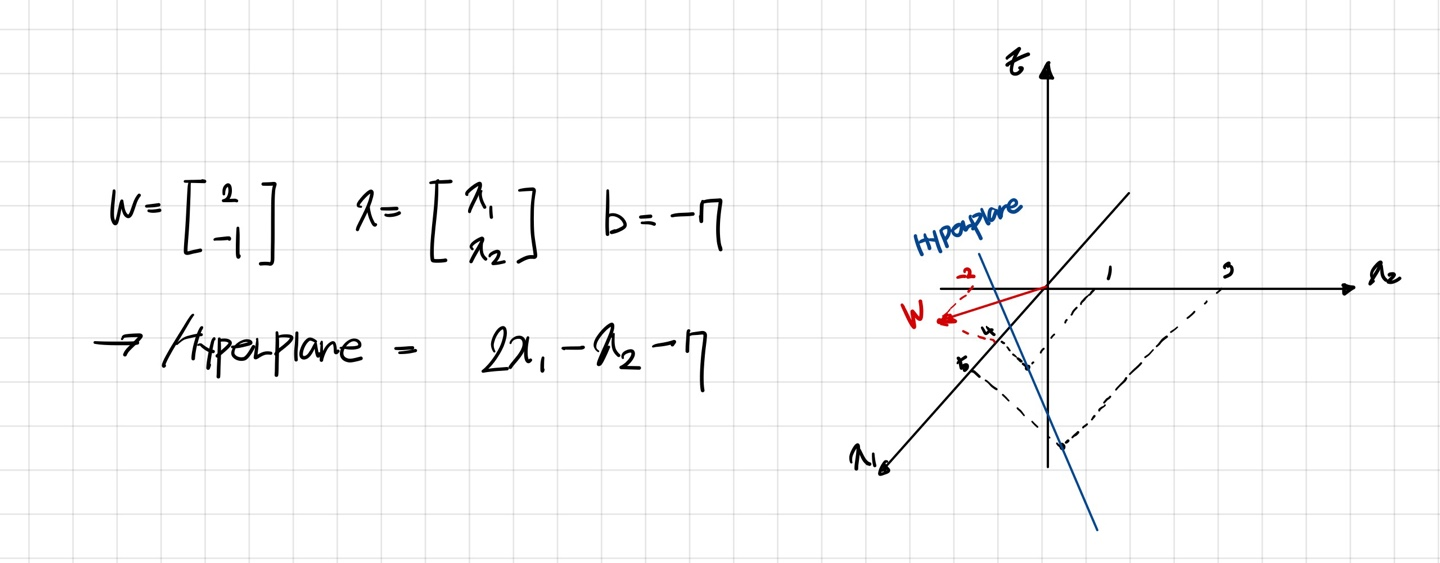 W = [2 -1] x = [x₁ x₂] b = -7
→ Hyperplane = 2x₁ - x₂ - 7
z
Hyperplane
-2
1
3
x₂
W
4
5
x₁